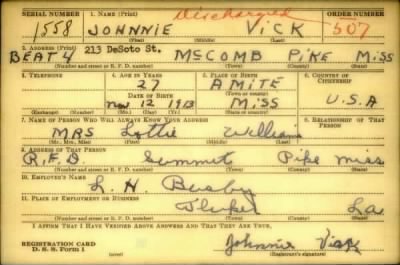 SERIAL NUMBER 1. NAME (Print) Discharged ORDER NUMBER
1558 JOHNNIE VICK 507
(First) (Middle) (Last)
2. ADDRESS (Print) 213 DeSoto St.
BEAT 4 McCOMB PIKE MISS
(Number and street or R. F. D. number) (Town) (County) (State)
3. TELEPHONE 4. AGE IN YEARS 5. PLACE OF BIRTH 6. COUNTRY OF CITIZENSHIP
27 AMITE
DATE OF BIRTH (Town or county)
Nov 12 1913 MISS U.S.A
(Exchange) (No.) (Mo.) (Day) (Yr.) (State or country)
7. NAME OF PERSON WHO WILL ALWAYS KNOW YOUR ADDRESS 8. RELATIONSHIP OF THAT PERSON
MRS Lottie Williams
(Mr., Mrs., Miss) (First) (Middle) (Last)
9. ADDRESS OF THAT PERSON
R.F.D. Summit Pike miss
(Number and street or R. F. D. number) (Town) (County) (State)
10. EMPLOYER'S NAME
L. H. Busby
11. PLACE OF EMPLOYMENT OR BUSINESS
La
(Number and street or R. F. D. number) (Town) (County) (State)
I AFFIRM THAT I HAVE VERIFIED ABOVE ANSWERS AND THAT THEY ARE TRUE.
REGISTRATION CARD Johnnie Vick
D. S. S. Form 1 (Registrant's signature)